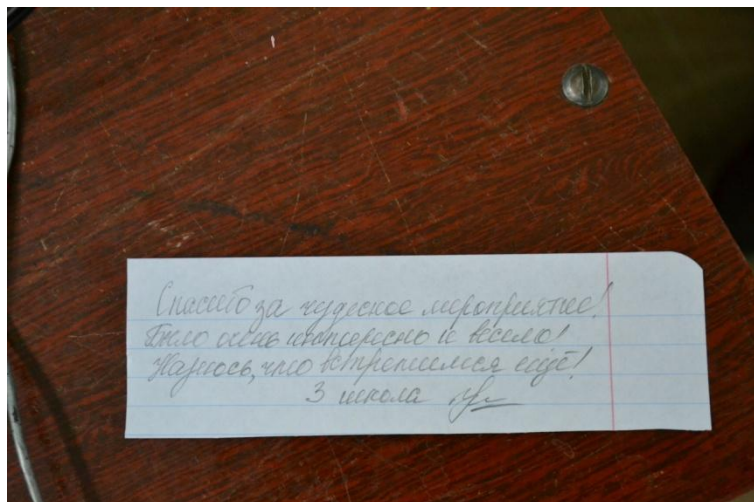 Спасибо за чудесное мероприятие!
Было очень интересно и весело!
Надеюсь, что встретимся ещё!
3 школа